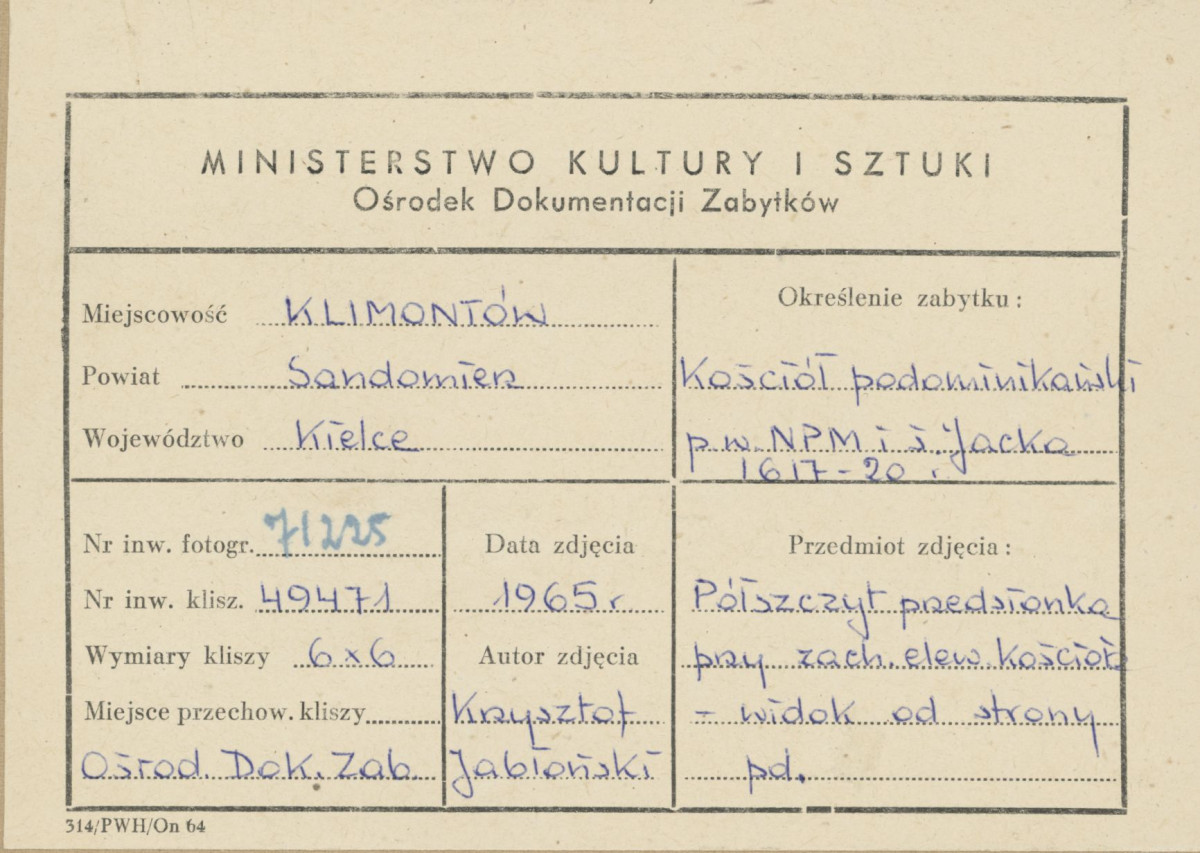 MINISTERSTWO KULTURY I SZTUKI
Ośrodek Dokumentacji Zabytków
Miejscowość KLIMONTÓW
Powiat Sandomierz
Województwo Kielce
Określenie zabytku:
Kościół podominikański
p.w. NPM i ś. Jacka
1617-20 r
Nr inw. fotogr. 71225
Nr inw. klisz. 49471
Wymiary kliszy 6x6
Miejsce przechow. kliszy
Ośrod. Dok. Zab.
Data zdjęcia
1965 r
Autor zdjęcia
Krzysztof
Jabłoński
Przedmiot zdjęcia:
Półszczyt przedsionka
przy zach. elew. kościoła
- widok od strony
pd.
314/PWH/On 64